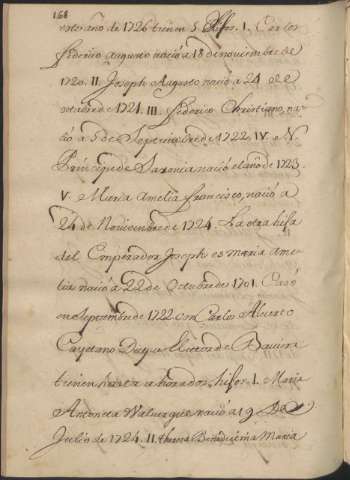 168
este año de 1726 tienen 5. Hijos. I. Carlos
Federico augusto nació a 18 de noviembre de
1720. II. Joseph Augusto nació a 24 de
octubre de 1721. III. Federico Christiano, na-
ció a 5 de Septiembre de 1722. IV. N
Principe de Saxonia nació el año de 1723.
V. Maria Amelia Francisco, nació a
24 de Noviembre de 1724. La otra hija
del Emperador Joseph es maria Ame
lia nació a 22 de Octubre de 1701. Casó
en septiembre de 1722 con Carlos Alverto
Cayetano Duque Elector de Baviera
tienen hasta ahora dos hijos. I. Maria
Antoneta nació a 19 de
Julio de 1724. II. theresa Benedictina Maria